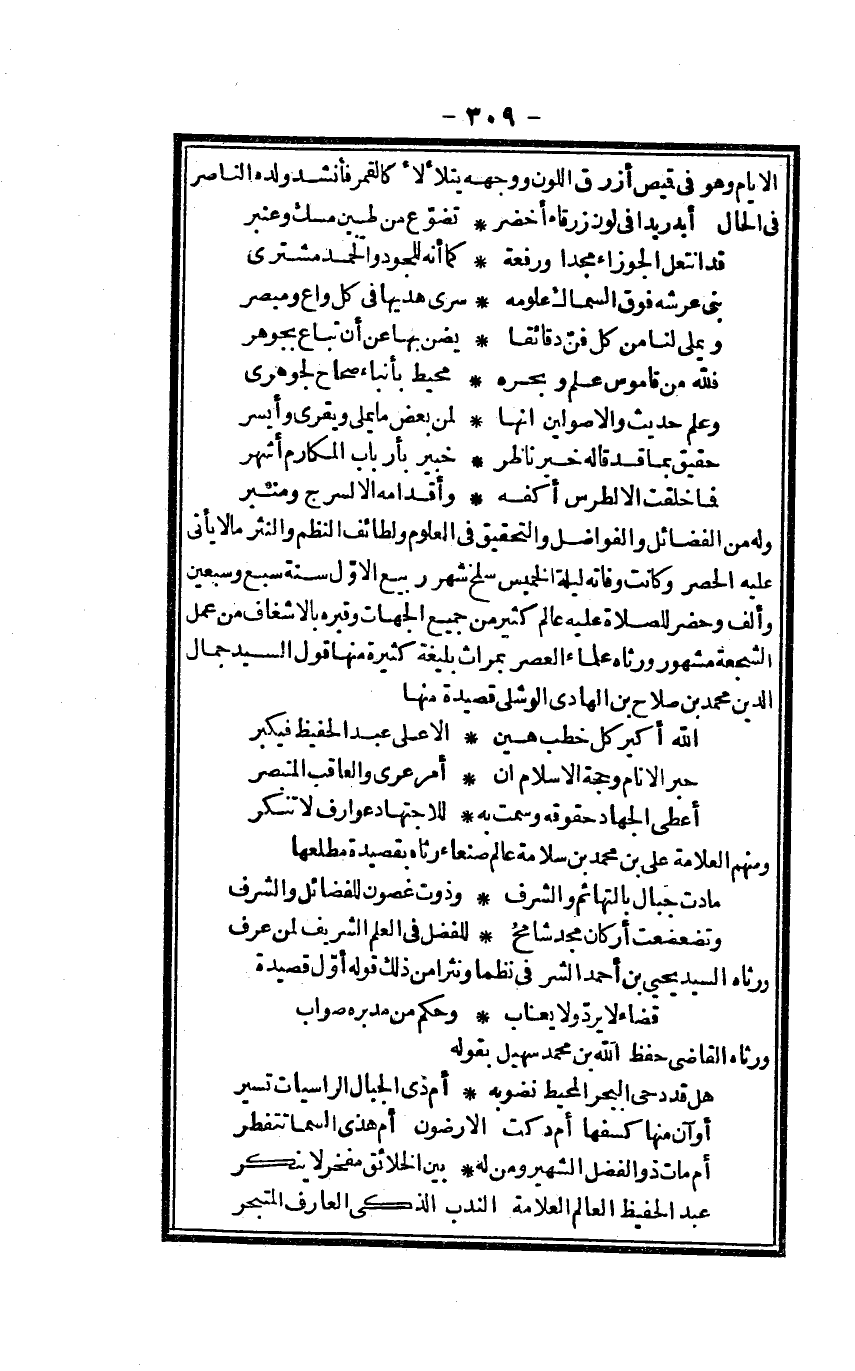 - ٣٠٩ -
الايام وهو فى قيص أزرق اللون ووجهه يتلألأ كالقمر فأنشد ولده الناصر
فى الحال أبدر بدا فى لون زرقاء أخضر * تضوّع من طيبين مسك وعنبر
قد انتعل الجوزاء مجدا ورفعة * كما أنه للجود والحمد مشترى
بنى عرشه فوق السماك علومه * سرى هديها فى كل واع ومبصر
ويملى لنا من كل فنّ دقائقا * يضن بها عن أن تباع بجوهر
فلله من قاموس علم وبحره * محيط بأنباء صحاح لجوهرى
وعلم حديث والاصولين انها * لمن بعض ما يملى ويقرى وأيسر
حقيق بما قد قاله خير ناظر * خبير بأرباب المكارم أشهر
فما خلقت الا لطرس أكفه * وأقدامه الا لسرج ومنبر
وله من الفضائل والفواضل والتحقيق فى العلوم ولطائف النظم والنثر مالا يأتى
عليه الحصر وكانت وفاته ليلة الخميس سلخ شهر ربيع الاوّل سنة سبع وسبعين
وألف وحضر للصلاة عليه عالم كثير من جميع الجهات وقبره بالاشعاف من عمل
الشجعة مشهور ورثاه علماء العصر بمراث بليغة كثيرة منها قول السيد جمال
الدين محمد بن صلاح بن الهادى الوشلى قصيدة منها
الله أكبر كل خطب هين * الا على عبد الحفيظ فيكبر
حبر الانام وحجة الاسلام ان * أمر عرى والعاقب المتبصر
أعطى الجهاد حقوقه وسمت به * للاجتهاد عوارف لا تنكر
ومنهم العلامة على بن محمد بن سلامة عالم صنعاء رثاه بقصيدة مطلعها
مادت جبال بالتهائم والشرف * وذوت غصون للفضائل والشرف
وتضعضعت أركان مجد شامخ * للفضل فى العلم الشريف لمن عرف
ورثاه السيد يحيى بن أحمد الشرفى نظما ونثرا من ذلك قوله أوّل قصيدة
قضاء لا يردّ ولا يعاب * وحكم من مدبره صواب
ورثاه القاضى حفظ الله بن محمد سهيل بقوله
هل قد دحى البحر المحيط نضوبه * أم ذى الجبال الراسيات تسير
أو آن منها كسفها أم دكت الارضون أم هذى السما تتفطر
أم مات ذو الفضل الشهير ومن له * بين الخلائق مفخر لا ينكر
عبد الحفيظ العالم العلامة الندب الذكى العارف المتبحر